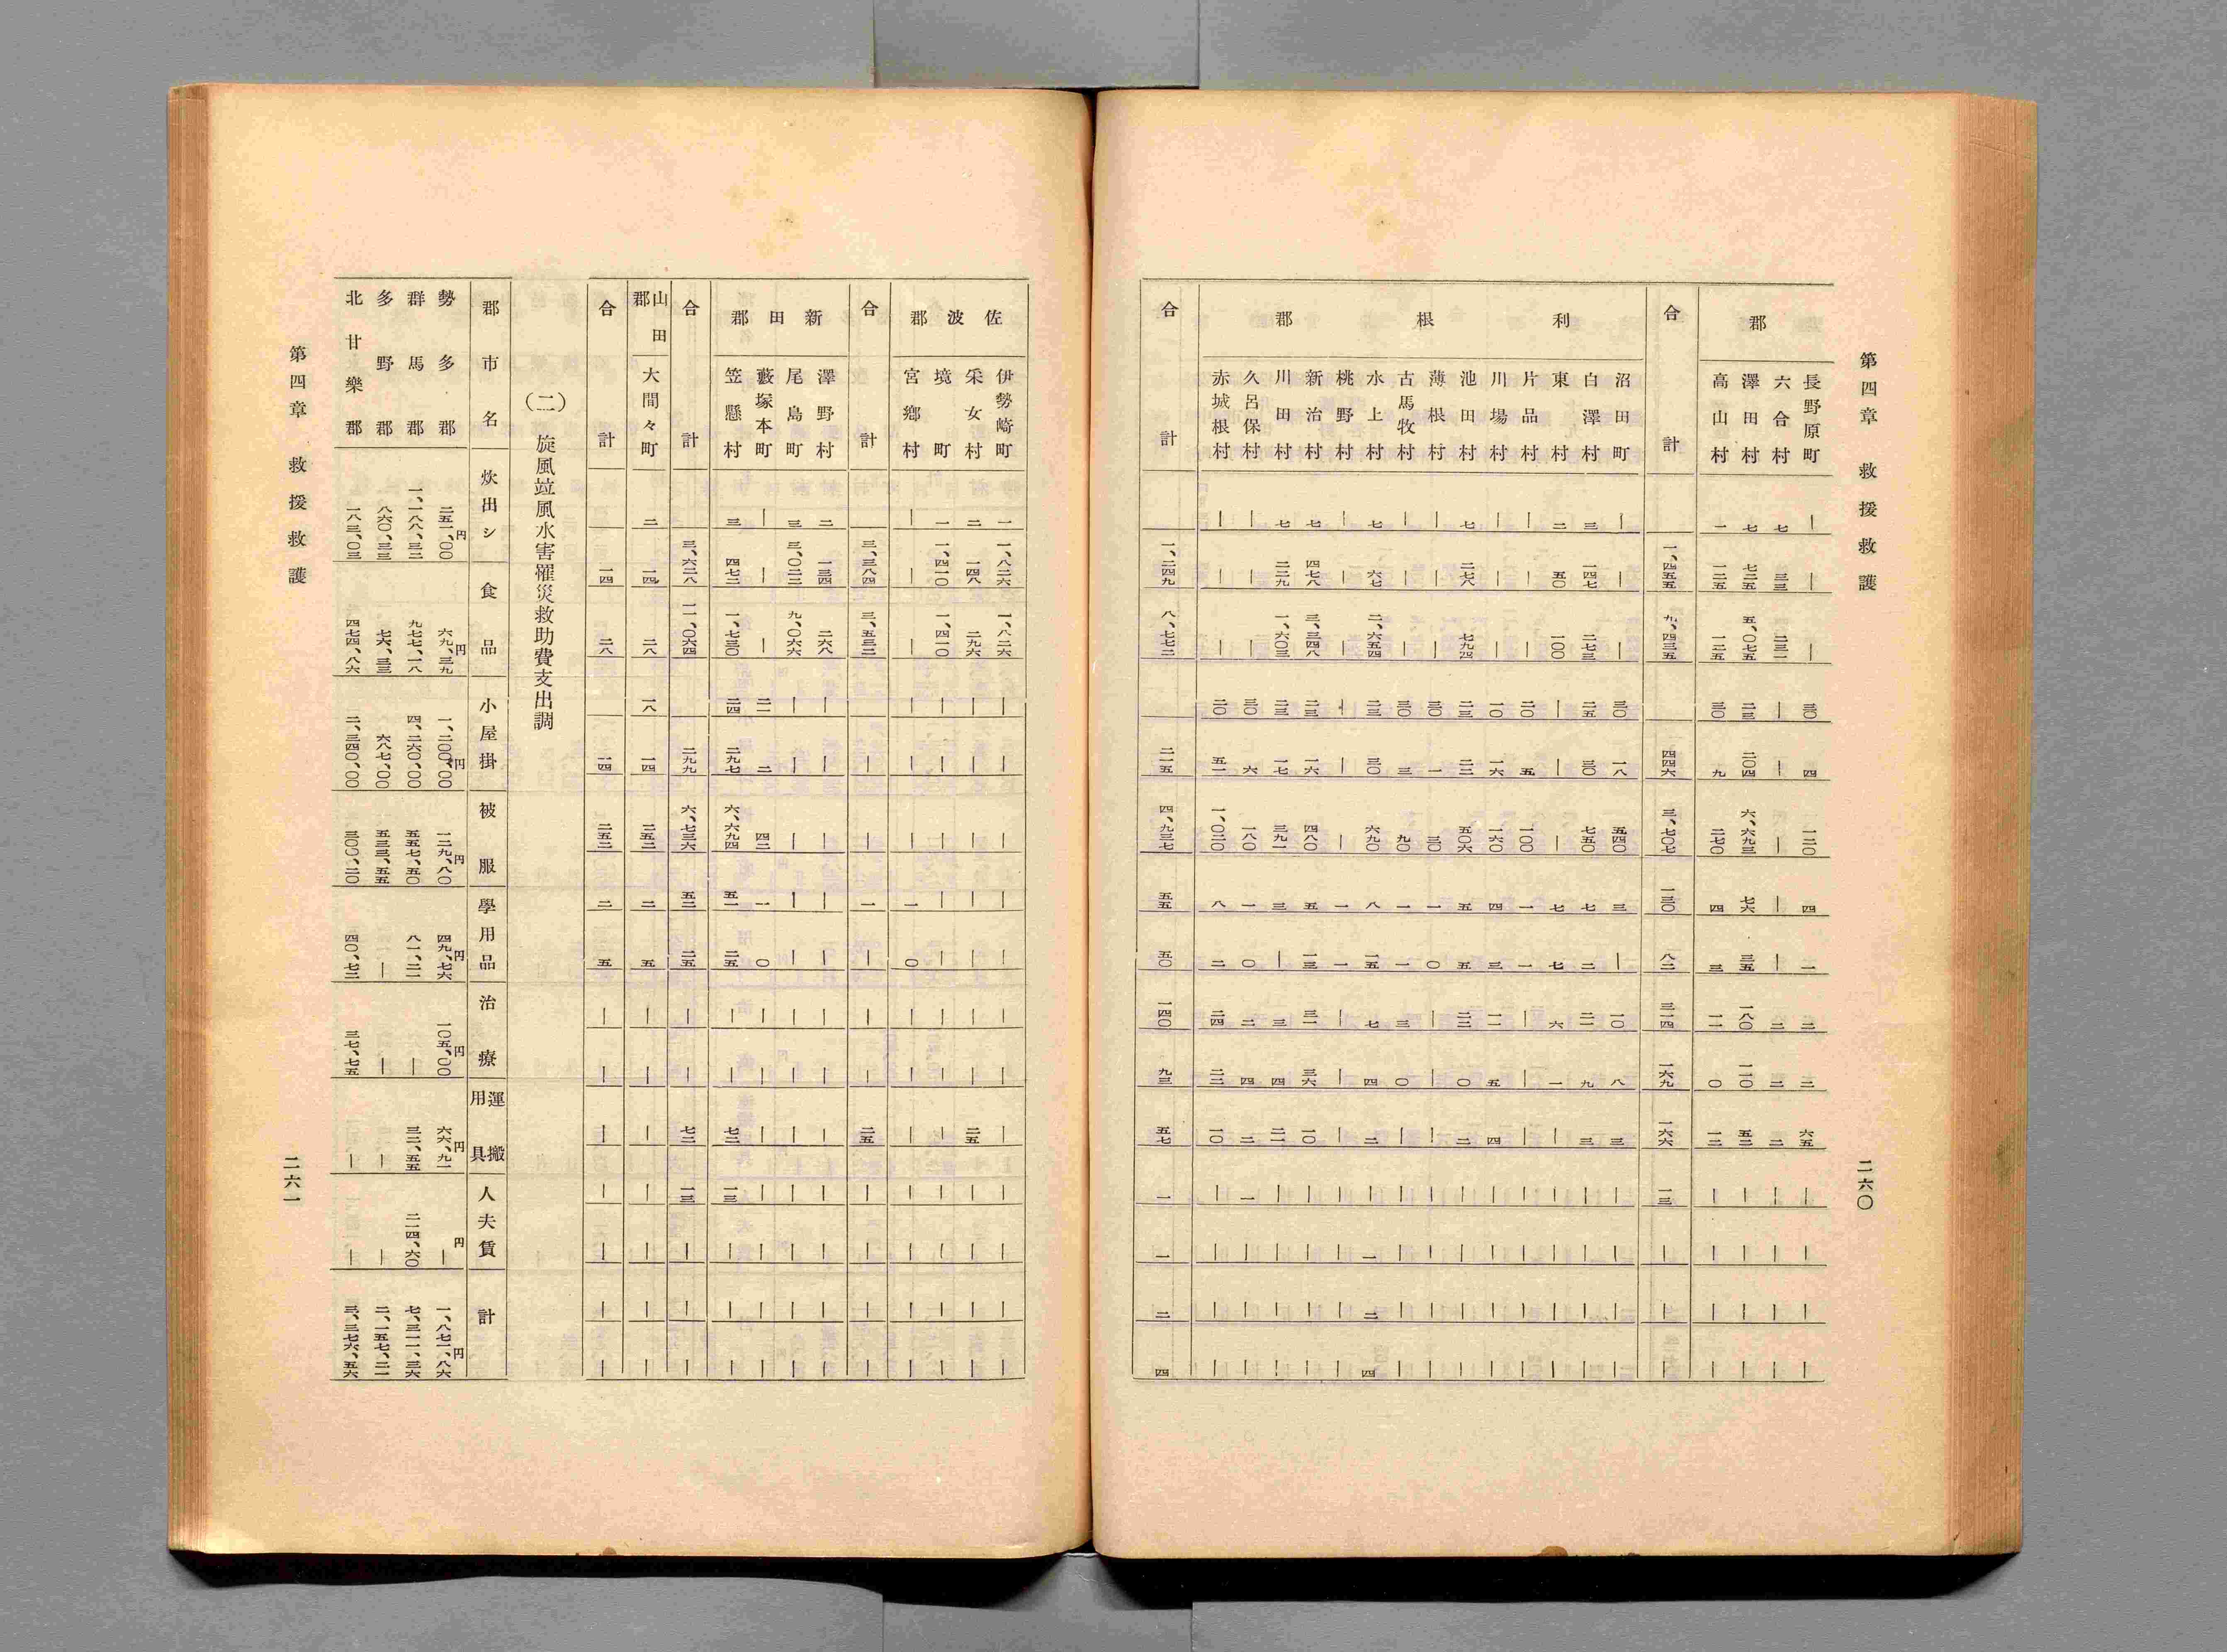 第四章　救援救護　二六〇
郡
長野原町　—　—　—　三〇　四　一二〇　四　一　二　二　六五　—　—　—　—
六合村　七　三三　二三一　—　—　—　—　—　二　二　二　—　—　—　—
澤田村　七　七二五　五、〇七五　二三　二〇四　六、六九三　七六　三五　一八〇　一一〇　五二　—　—　—　—
高山村　一　一二五　一二五　三〇　九　二七〇　四　三　一一　〇　一二　—　—　—　—
合計　一、四五五　九、四三五　四四六　三、七〇七　一三〇　八二　三一四　一六九　一六六　一三　—　—　—
利根郡
沼田町　—　—　—　三〇　一八　五四〇　三　—　一〇　八　三　—　—　—　—
白澤村　三　一四七　二七三　二五　三〇　七五〇　七　二　二一　九　三　—　—　—　—
東村　二　五〇　一〇〇　—　—　—　七　七　六　一　—　—　—　—　—
片品村　—　—　—　二〇　五　一〇〇　一　一　—　—　—　—　—　—　—
川場村　—　—　—　一〇　一六　一六〇　四　三　一一　五　四　—　—　—　—
池田村　七　二七八　七九四　二三　二二　五〇六　五　五　二二　〇　二　—　—　—　—
薄根村　—　—　—　三〇　一　三〇　一　〇　—　—　—　—　—　—　—
古馬牧村　—　—　—　三〇　三　九〇　一　一　三　〇　—　—　—　—　—
水上村　七　六七　二、六五四　二三　三〇　六九〇　八　一五　七　四　二　—　一　二　四
桃野村　—　—　—　—　—　—　一　一　—　—　—　—　—　—　—
新治村　七　四七八　三、三四八　二三　一六　四八〇　五　一三　三一　三六　一〇　—　—　—　—
川田村　七　二二九　一、六〇三　二三　一七　三九一　三　—　三　四　二一　—　—　—　—
久呂保村　—　—　—　三〇　六　一八〇　一　〇　二　四　二　一　—　—　—
赤城根村　—　—　—　二〇　五一　一、〇二〇　八　二　二四　二二　一〇　—　—　—　—
合計　一、二四九　八、七七二　二一五　四、九三七　五五　五〇　一四〇　九三　五七　一　一　二　四
佐波郡
伊勢崎町　一　一、八二六　一、八二六　—　—　—　—　—　—　—　—　—　—　—　—
采女村　二　一四八　二九六　—　—　—　—　—　—　—　二五　—　—　—　—
境町　一　一、四一〇　一、四一〇　—　—　—　—　—　—　—　—　—　—　—　—
宮鄕村　—　—　—　—　—　—　一　〇　—　—　—　—　—　—　—
合計　三、三八四　三、五三二　—　—　一　—　—　—　二五　—　—　—　—
新田郡
澤野村　二　一三四　二六八　—　—　—　—　—　—　—　—　—　—　—　—
尾島町　三　三、〇二二　九、〇六六　—　—　—　—　—　—　—　—　—　—　—　—
藪塚本町　—　—　—　二一　二　四二　一　〇　—　—　—　—　—　—　—
笠懸村　三　四七二　一、七三〇　二四　二九七　六、六九四　五一　二五　—　—　七二　一三　—　—　—
合計　三、六二八　一一、〇六四　二九九　六、七三六　五二　二五　—　—　七二　一三　—　—　—
山田郡
大間々町　二　一四　二八　一八　一四　二五二　二　五　—　—　—　—　—　—　—
合計　一四　二八　一四　二五二　二　五　—　—　—　—　—　—　—
(二)　旋風竝風水害罹災救助費支出調
郡市名　炊出シ　食品　小屋掛　被服　學用品　治療　運搬用具　人夫賃　計
勢多郡　二五一、〇〇円　六九、三九円　一、二〇〇、〇〇円　一二九、八〇円　四九、七六円　一〇五、〇〇円　六六、九一円　—円　一、八七一、八六円
群馬郡　一、一八八、三二　九七七、一八　四、二六〇、〇〇　五五七、五〇　八一、二一　—　三二、五五　二一四、六〇　七、三一一、三六
多野郡　八六〇、三三　七六、三三　六八七、〇〇　五三三、五五　—　—　—　—　二、一五七、二一
北甘樂郡　一八三、〇三　四七四、八六　二、三四〇、〇〇　三〇〇、二〇　四〇、七二　三七、七五　—　—　三、三七六、五六
第四章　救援救護　二六一